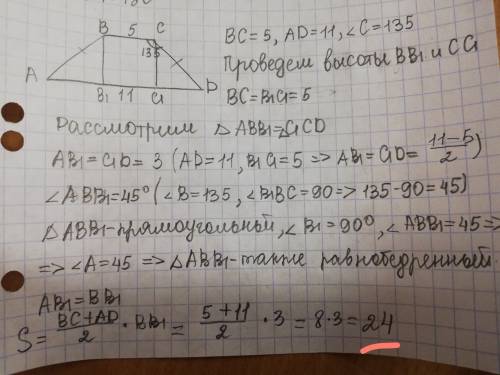 B 5 C
135
A
D
B₁ 11 C₁
BC = 5, AD = 11, ∠C = 135
Проведем высоты BB₁ и CC₁
BC = B₁C₁ = 5
Рассмотрим △ABB₁ = C₁CD
AB₁ = C₁D = 3 (AD = 11, B₁C₁ = 5 => AB₁ = C₁D = (11-5)/2)
∠ABB₁ = 45° (∠B = 135, ∠B₁BC = 90 => 135 - 90 = 45)
△ABB₁ - прямоугольный, ∠B₁ = 90°, ∠ABB₁ = 45 =>
=> ∠A = 45 => △ABB₁ - также равнобедренный.
AB₁ = BB₁
S = (BC + AD)/2 · BB₁ = (5 + 11)/2 · 3 = 8 · 3 = 24